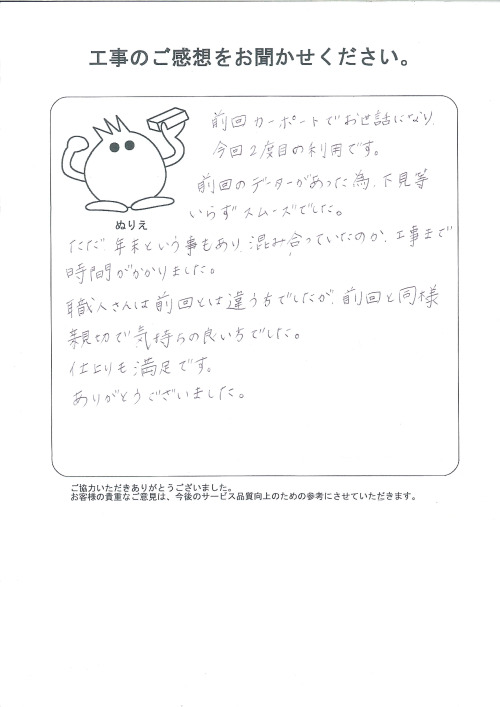 工事のご感想をお聞かせください。
前回カーポートでお世話になり、
今回2度目の利用です。
前回のデーターがあった為、下見等
いらずスムーズでした。
ぬりえ
ただ、年末という事もあり、混み合っていたのか、工事まで
時間がかかりました。
職人さんは前回とは違う方でしたが、前回と同様
親切で気持ちの良い方でした。
仕上りも満足です。
ありがとうございました。
ご協力いただきありがとうございました。
お客様の貴重なご意見は、今後のサービス品質向上のための参考にさせていただきます。